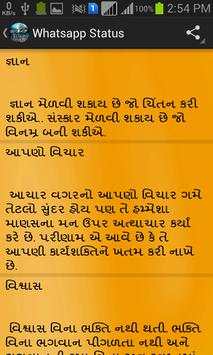 0 K/s
2:54 PM
Whatsapp Status
જ્ઞાન
જ્ઞાન મેળવી શકાય છે જો ચિંતન કરી
શકીએ.. સંસ્કાર મેળવી શકાય છે જો
વિનમ્ર બની શકીએ.
આપણો વિચાર
આચાર વગરનો આપણો વિચાર ગમે
તેટલો સુંદર હોય પણ તે હમ્મેશા
માણસના મન ઉપર અત્યાચાર કર્યા
કરે છે. પરીણામ એ આવે છે કે તે
આપણી કાર્યશક્તિને ખતમ કરી નાખે
છે.
વિશ્વાસ
વિશ્વાસ વિના ભક્તિ નથી થતી. ભક્તિ
વિના ભગવાન પીગળતા નથી અને